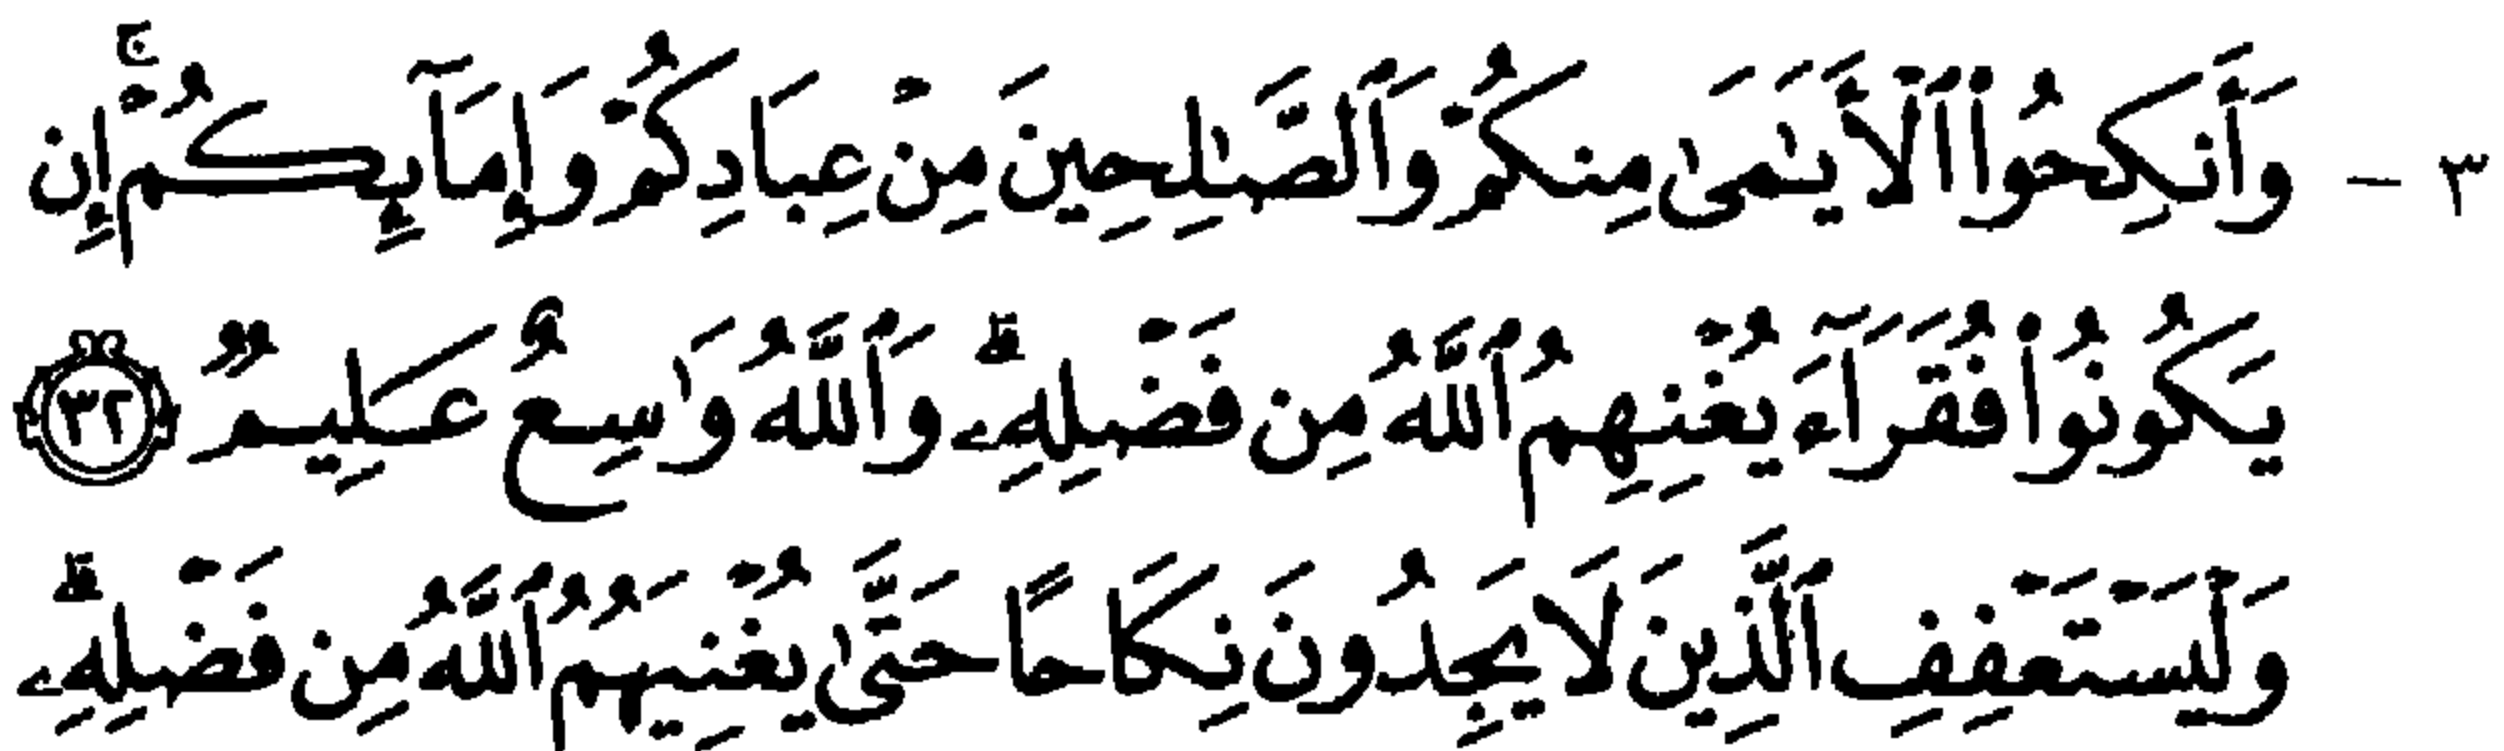 ٣ – وَأَنكِحُوا۟ ٱلْأَيَـٰمَىٰ مِنكُمْ وَٱلصَّـٰلِحِينَ مِنْ عِبَادِكُمْ وَإِمَآئِكُمْ ۚ إِن
يَكُونُوا۟ فُقَرَآءَ يُغْنِهِمُ ٱللَّهُ مِن فَضْلِهِۦ ۗ وَٱللَّهُ وَٰسِعٌ عَلِيمٌ ۝٣٢
وَلْيَسْتَعْفِفِ ٱلَّذِينَ لَا يَجِدُونَ نِكَاحًا حَتَّىٰ يُغْنِيَهُمُ ٱللَّهُ مِن فَضْلِهِۦ ۗ